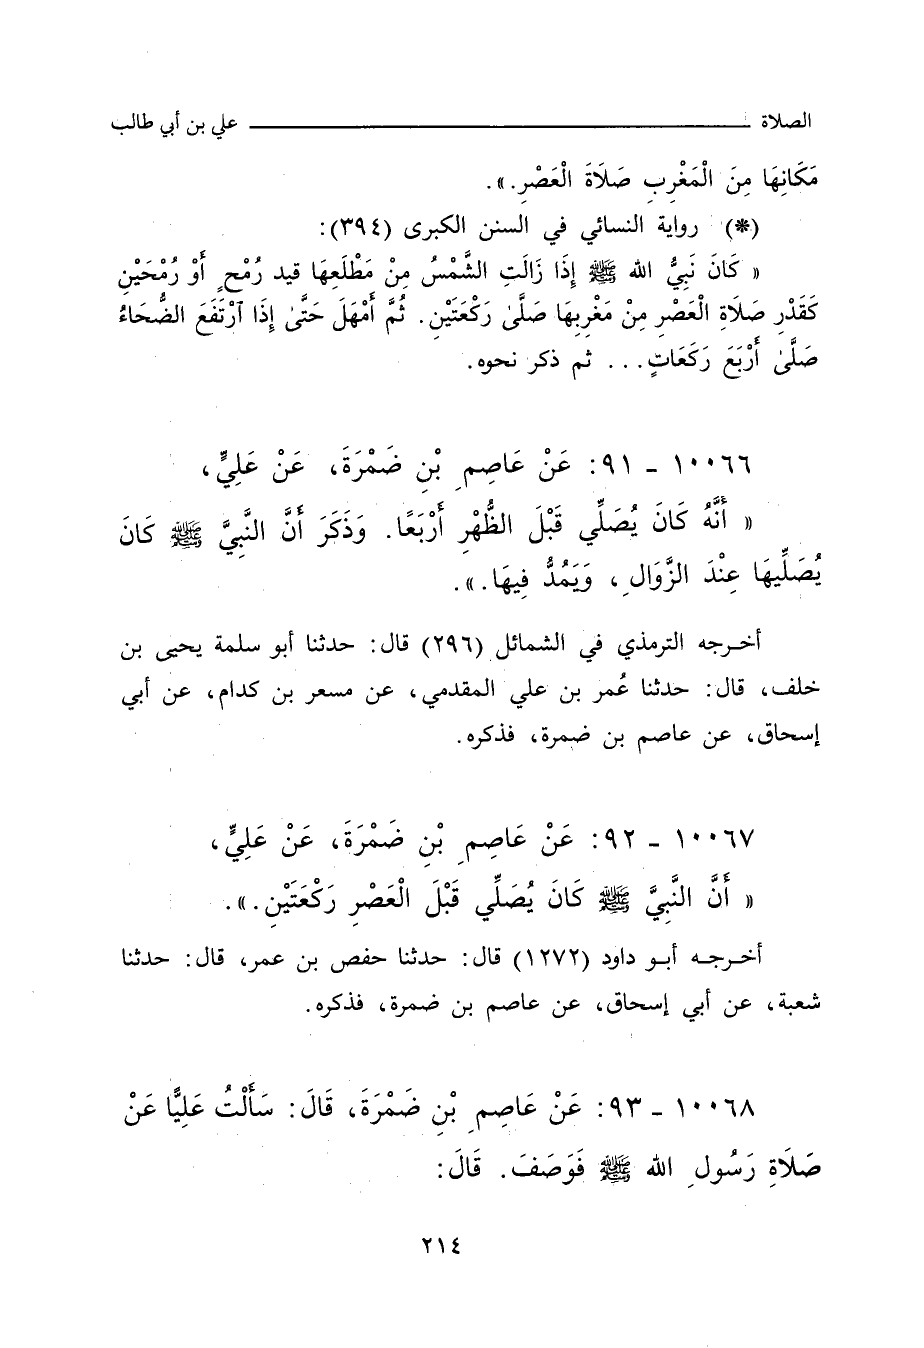 الصلاة ــــــــــــــــ علي بن أبي طالب
مَكَانِهَا مِنَ الْمَغْرِبِ صَلَاةَ الْعَصْرِ.».
(*) رواية النسائي في السنن الكبرى (٣٩٤):
« كَانَ نَبِيُّ الله ﷺ إِذَا زَالَتِ الشَّمْسُ مِنْ مَطْلَعِهَا قيد رُمْحٍ أَوْ رُمْحَيْنِ
كَقَدْرِ صَلَاةِ الْعَصْرِ مِنْ مَغْرِبِهَا صَلَّىٰ رَكْعَتَيْنِ. ثُمَّ أَمْهَلَ حَتَّىٰ إِذَا ٱرْتَفَعَ الضُّحَاءُ
صَلَّىٰ أَرْبَعَ رَكَعَاتٍ... ثم ذكر نحوه.
١٠٠٦٦ ـ ٩١: عَنْ عَاصِمِ بْنِ ضَمْرَةَ، عَنْ عَلِيٍّ،
« أَنَّهُ كَانَ يُصَلِّي قَبْلَ الظُّهْرِ أَرْبَعًا. وَذَكَرَ أَنَّ النَّبِيَّ ﷺ كَانَ
يُصَلِّيهَا عِنْدَ الزَّوَالِ، وَيَمُدُّ فِيهَا.».
أخرجه الترمذي في الشمائل (٢٩٦) قال: حدثنا أبو سلمة يحيى بن
خلف، قال: حدثنا عُمر بن علي المقدمي، عن مسعر بن كدام، عن أبي
إسحاق، عن عاصم بن ضمرة، فذكره.
١٠٠٦٧ ـ ٩٢: عَنْ عَاصِمِ بْنِ ضَمْرَةَ، عَنْ عَلِيٍّ،
« أَنَّ النَّبِيَّ ﷺ كَانَ يُصَلِّي قَبْلَ الْعَصْرِ رَكْعَتَيْنِ.».
أخرجه أبو داود (١٢٧٢) قال: حدثنا حفص بن عمر، قال: حدثنا
شعبة، عن أبي إسحاق، عن عاصم بن ضمرة، فذكره.
١٠٠٦٨ ـ ٩٣: عَنْ عَاصِمِ بْنِ ضَمْرَةَ، قَالَ: سَأَلْتُ عَلِيًّا عَنْ
صَلَاةِ رَسُولِ الله ﷺ فَوَصَفَ. قَالَ:
٢١٤